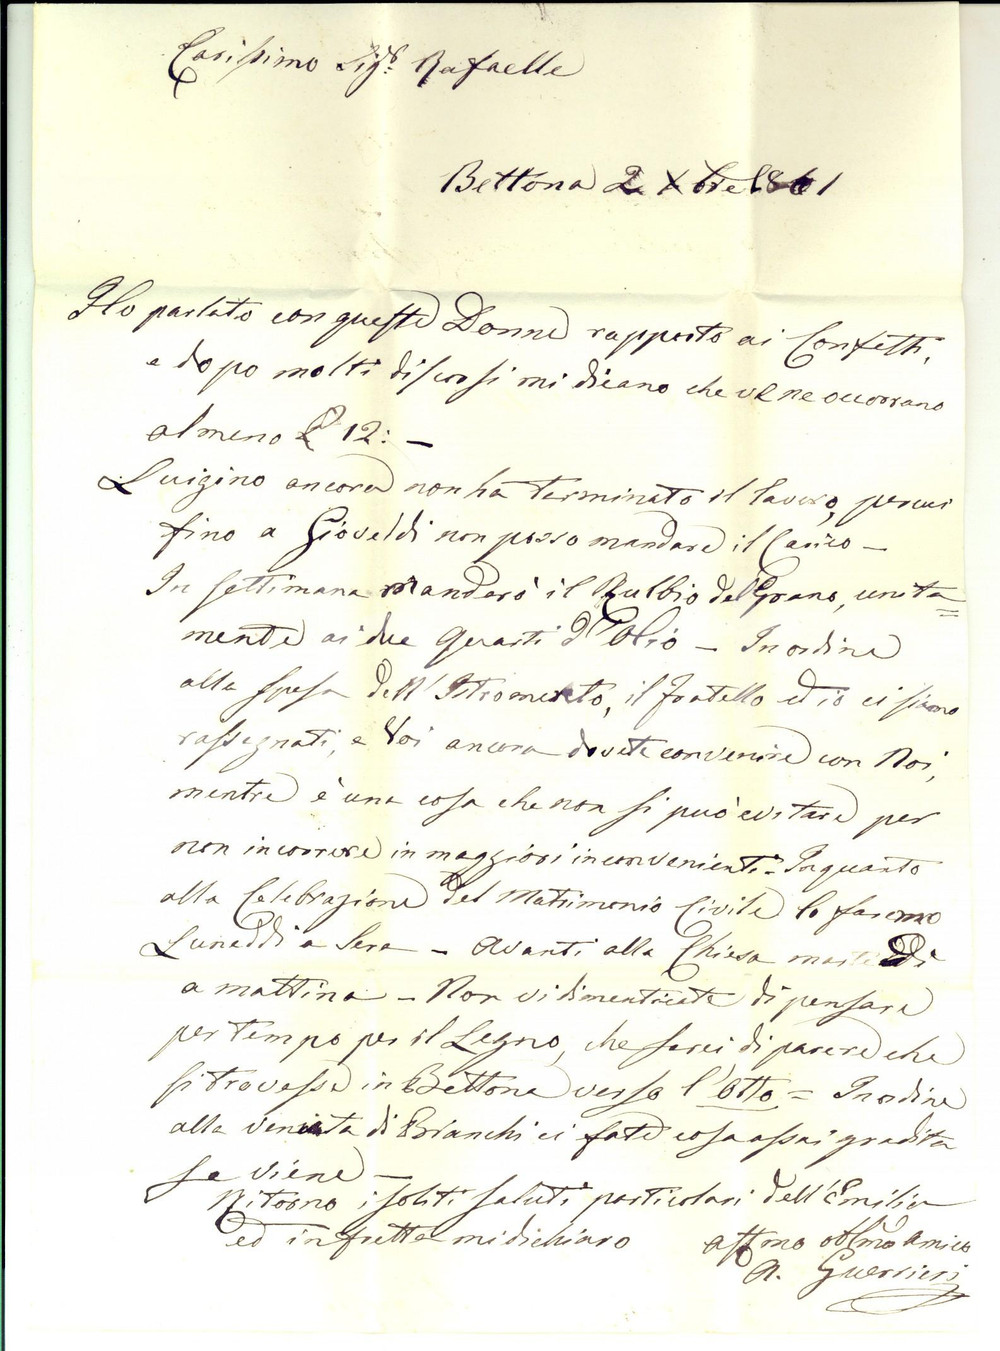 Carissimo Sigr. Rafaelle
Bettona 2 Xbre 1861
Ho parlato con queste Donne rapporto ai Confetti,
e dopo molti discorsi mi dicano che ve ne occorrano
almeno £ 12: —
Luigino ancora non ha terminato il lavoro, percui
fino a Gioveddi non posso mandare il Carico —
In settimana manderò il Rubbio del Grano, unita=
mente ai due Quarti d'Olio — In ordine
alla spesa dell'Istromento, il fratello ed io ci siamo
rassegnati, e Voi ancora dovete convenire con Noi,
mentre è una cosa che non si può evitare per
non incorrere in maggiori inconvenienti = Inquanto
alla Celebrazione del Matrimonio Civile lo faremo
Luneddi a Sera — Avanti alla Chiesa marteddi
a mattina — Non vi dimenticate di pensare
per tempo per il Legno, che sarei di parere che
si trovasse in Bettona verso l'otto = In ordine
alla venuta di Bianchi ci fate cosa assai gradita
se viene —
Ritorno i soliti saluti particolari dell'Emilia
ed in fretta mi dichiaro affmo obbmo amico
A. Guerrieri